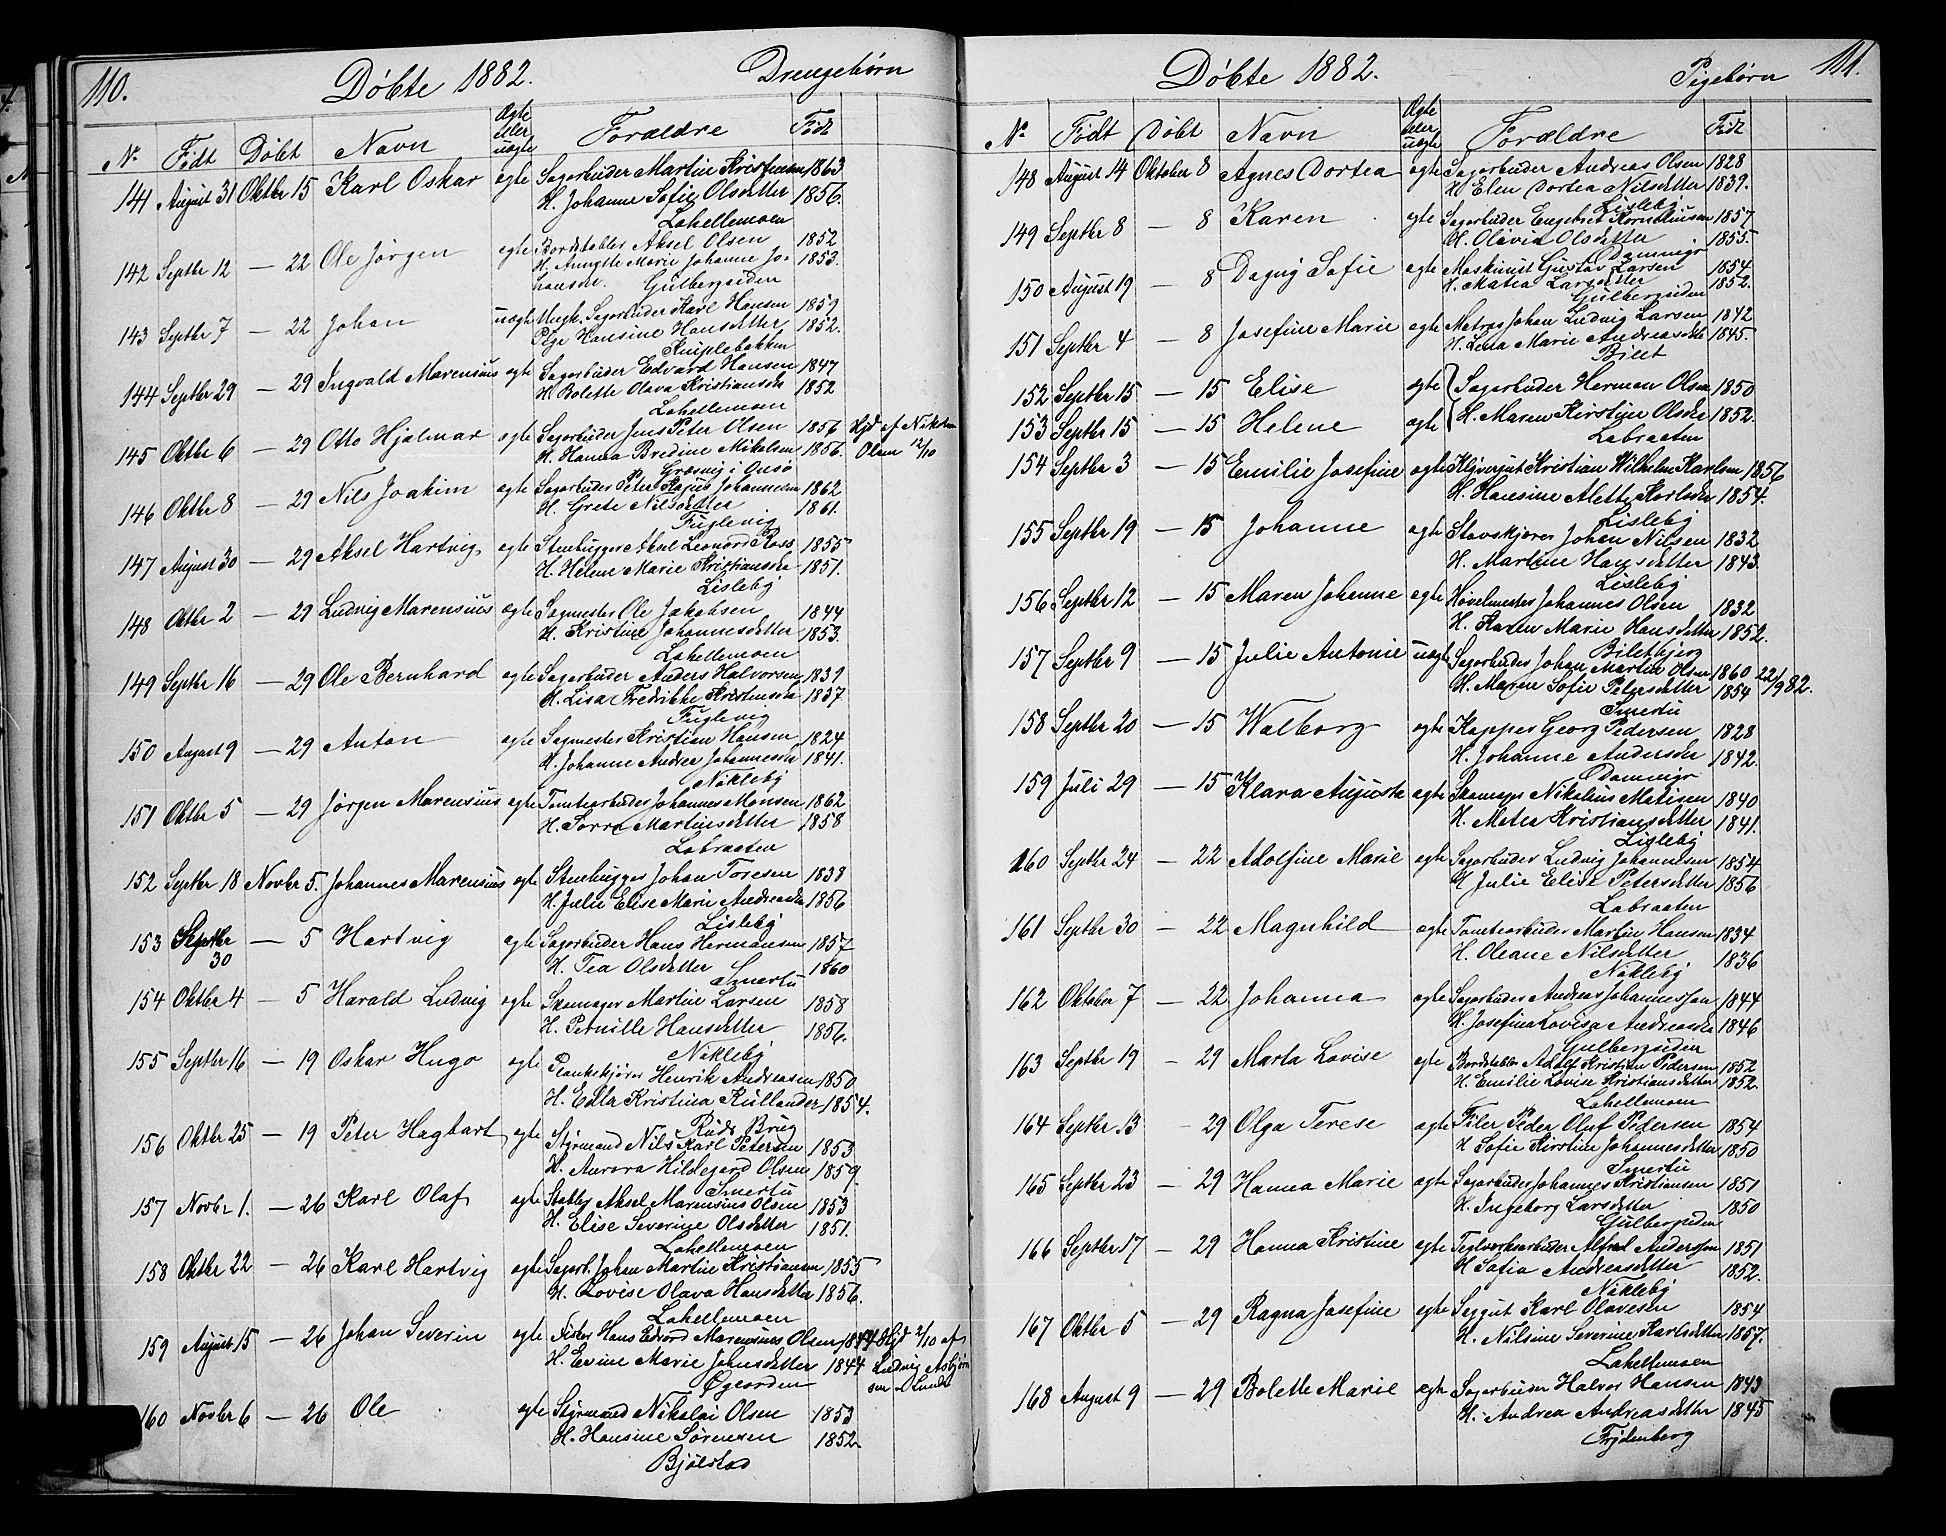 110.
Døbte 1882.
Drengebørn
No Født Døbt Navn Ægte eller uægte Forældre Født
141 August 31 Oktbr 15 Karl Oskar ægte Sagarbeider Martin Kristensen 1863
H. Johanne Sofie Olsdatter 1856.
Lahellemoen
142 Septbr 12 — 22 Ole Jørgen ægte Bordstabler Aksel Olsen 1852
H. Annette Marie Johanne Jo- 1853.
hansdr. Gulbergsiden
143 Septbr 7 — 22 Johan uægte Ungk. Sagarbeider Karl Hansen 1859
Pige Hansine Hansdatter 1852.
Kniplebakken
144 Septbr 29 — 29 Ingvald Marensius ægte Sagarbeider Edvard Hansen 1847
H. Bolette Olava Kristiansdr 1852
Lahellemoen
145 Oktbr 6 — 29 Otto Hjalmar ægte Sagarbeider Jens Peter Olsen 1856 Hjd af
H. Hanna Bredine Mikalsen 1856. Olsen 12/10
Græsvig i Onsø
146 Oktbr 8 — 29 Nils Joakim ægte Sagarbeider Peter Johannesen 1862
H. Grete Nilsdatter 1861.
Fuglevig
147 August 30 — 29 Aksel Hartvig ægte Stenhugger Aksel Leonard Ross 1855
H. Helene Marie Kristiansdr 1851.
Lisleby
148 Oktbr 2 — 29 Ludvig Marensius ægte Sagmester Ole Jakobsen 1844
H. Kristine Johannesdatter 1853.
Lahellemoen
149 Septbr 16 — 29 Ole Bernhard ægte Sagarbeider Anders Halvorsen 1839
H. Lisa Fredrikke Kristensdr 1837.
Fuglevig
150 August 9 — 29 Anton ægte Sagmester Kristian Hansen 1824
H. Johanne Andrea Johannesdr 1841.
Nikleby
151 Oktbr 5 — 29 Jørgen Marensius ægte Tomtearbeider Johannes Monsen 1862
H. Martinsdatter 1858
Labraaten
152 Septbr 18 Novbr 5. Johannes Marensius ægte Stenhugger Johan Toresen 1838
H. Julie Elise Marie Andreasdr 1856
Lisleby
153 Septbr — 5 Hartvig ægte Sagarbeider Hans Hermansen 1857
30 H. Tea Olsdatter 1860
Smertu
154 Oktbr 4 — 5 Harald Ludvig ægte Skomager Martin Larsen 1858
H. Pernille Hansdatter 1856.
Nikleby
155 Septbr 16 — 19 Oskar Hugo ægte Plankekjører Henrik Andreasen 1850
H. Edla Kristina Kullander 1854.
Ruds Brug
156 Oktbr 25 — 19 Peter Hagbart ægte Styrmand Nils Karl Petersen 1853
H. Aurora Hildegard Olsen 1859.
Smertu
157 Novbr 1. — 26 Karl Olaf ægte Aksel Marensius Olsen 1853
H. Elise Severine Olsdatter 1851.
Lahellemoen
158 Oktbr 22 — 26 Karl Hartvig ægte Sagarb. Johan Martin Kristiansen 1855
H. Lovise Olava Hansdatter 1856.
Lahellemoen
159 August 15 — 26 Johan Severin ægte Fisker Hans Edvard Marensius Olsen Hjd 2/10 af
H. Evine Marie Johnsdatter 1844 Ludvig Asbjørn
Øgaarden
160 Novbr 6 — 26 Ole ægte Styrmand Nikolai Olsen 1853
H. Hansine Sørensen 1852
Bjølstad
111.
Døbte 1882.
Pigebørn
No Født Døbt Navn Ægte eller uægte Forældre Født
148 August 14 Oktober 8 Agnes Dortea ægte Sagarbeider Andreas Olsen 1828
H. Elen Dortea Nilsdatter 1839.
Lisleby
149 Septbr 8 — 8 Karen ægte Sagarbeider Engebret Korneliusen 1857
H. Olavia Olsdatter 1855.
Dammyr
150 August 19 — 8 Dagny Sofie ægte Maskinist Gustav Larsen 1854
H. Matia Larsdatter 1852.
Gulbergsiden
151 Septbr 4 — 8 Josefine Marie ægte Matros Johan Ludvig Larsen 1842
H. Lena Marie Andreasdr 1845.
Bilet
152 Septbr 15 — 15 Elise ægte Sagarbeider Herman Olsen 1850
153 Septbr 15 — 15 Helene ægte H. Maren Kirstine Olsdr 1852.
Labraaten
154 Septbr 3 — 15 Emilie Josefine ægte Kløvergut Kristian Wilhelm Karlsen 1856
H. Hansine Alette Karlsdr 1854.
Lisleby
155 Septbr 19 — 15 Johanne ægte Stavskjører Johan Nilsen 1832
H. Martine Hansdatter 1843.
Lisleby
156 Septbr 12 — 15 Maren Johanne ægte Høvelmester Johannes Olsen 1832
H. Karen Marie Hansdatter 1852.
Biletbjerg
157 Septbr 9 — 15 Julie Antonie uægte Sagarbeider Johan Martin Olsen 1860 22/9 82.
H. Maren Sofie Petersdatter 1854
Smertu
158 Septbr 20 — 15 Walborg ægte Kapper Georg Pedersen 1828
H. Johanne Andersdr 1842.
Dammyr
159 Juli 29 — 15 Klara Augusta ægte Skomager Nikolius Matisen 1840
H. Matea Kristiansdatter 1841.
Lisleby
160 Septbr 24 — 22 Adolfine Marie ægte Sagarbeider Ludvig Johannesen 1854
H Julie Elise Petersdatter 1856
Labraaten
161 Septbr 30 — 22 Magnhild ægte Tomtearbeider Martin Hansen 1834
H. Oleane Nilsdatter 1836
Nikleby
162 Oktober 7 — 22 Johanna ægte Sagarbeider Andreas Johannessen 1844
H. Josefina Lovisa Andreasdr 1846
Gulbergsiden
163 Septbr 19 — 29 Marta Lovise ægte Bordstabler Adolf Kristian Pedersen 1852
H. Emilie Lovise Kristiansdatter 1852.
Lahellemoen
164 Septbr 13 — 29 Olga Terese ægte Filer Peder Oluf Pedersen 1854
H Sofie Kirstine Johannesdatter 1850
Smertu
165 Septbr 23 — 29 Hanna Marie ægte Sagarbeider Johannes Kristiansen 1851
H. Ingeborg Larsdatter 1850
Gulbergsiden
166 Septbr 17 — 29 Hanna Kristine ægte Teglverksarbeider Alfred Anderssen 1851
H Sofia Andreasdatter 1852.
Nikleby
167 Oktbr 5 — 29 Ragna Josefine ægte Seggut Karl Olavesen 1854
H. Nilsine Severine Karlsdatter 1857.
Lahellemoen
168 August 9 — 29 Bolette Marie ægte Sagarbeider Halvor Hansen 1843
H. Andrea Andreasdatter 1845
Frydenberg